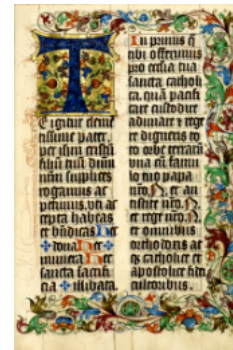 T
E igitur cleme
tissime pater.
per ihm cristū
filiū tuū dūm
nr̄m supplices
rogamus ac
petimus. vti ac
cepta habeas
et bn̄dicas hec
✠ dona hec
munera hec
sancta sacrifi
cia ✠ illibata.
In primis q̄
tibi offerimus
pro ecclīa tua
sancta catholi
ca. quā pacifi
care custodire
adunare ⁊ rege
re digneris to
to orbe terrarū
vna cū famu
lo tuo papa
nr̄o. N. et an
tistite nr̄o. N.
et rege nr̄o. N.
et omnibus
orthodoxis at
q̄ catholice et
apostolice fidei
cultoribus.